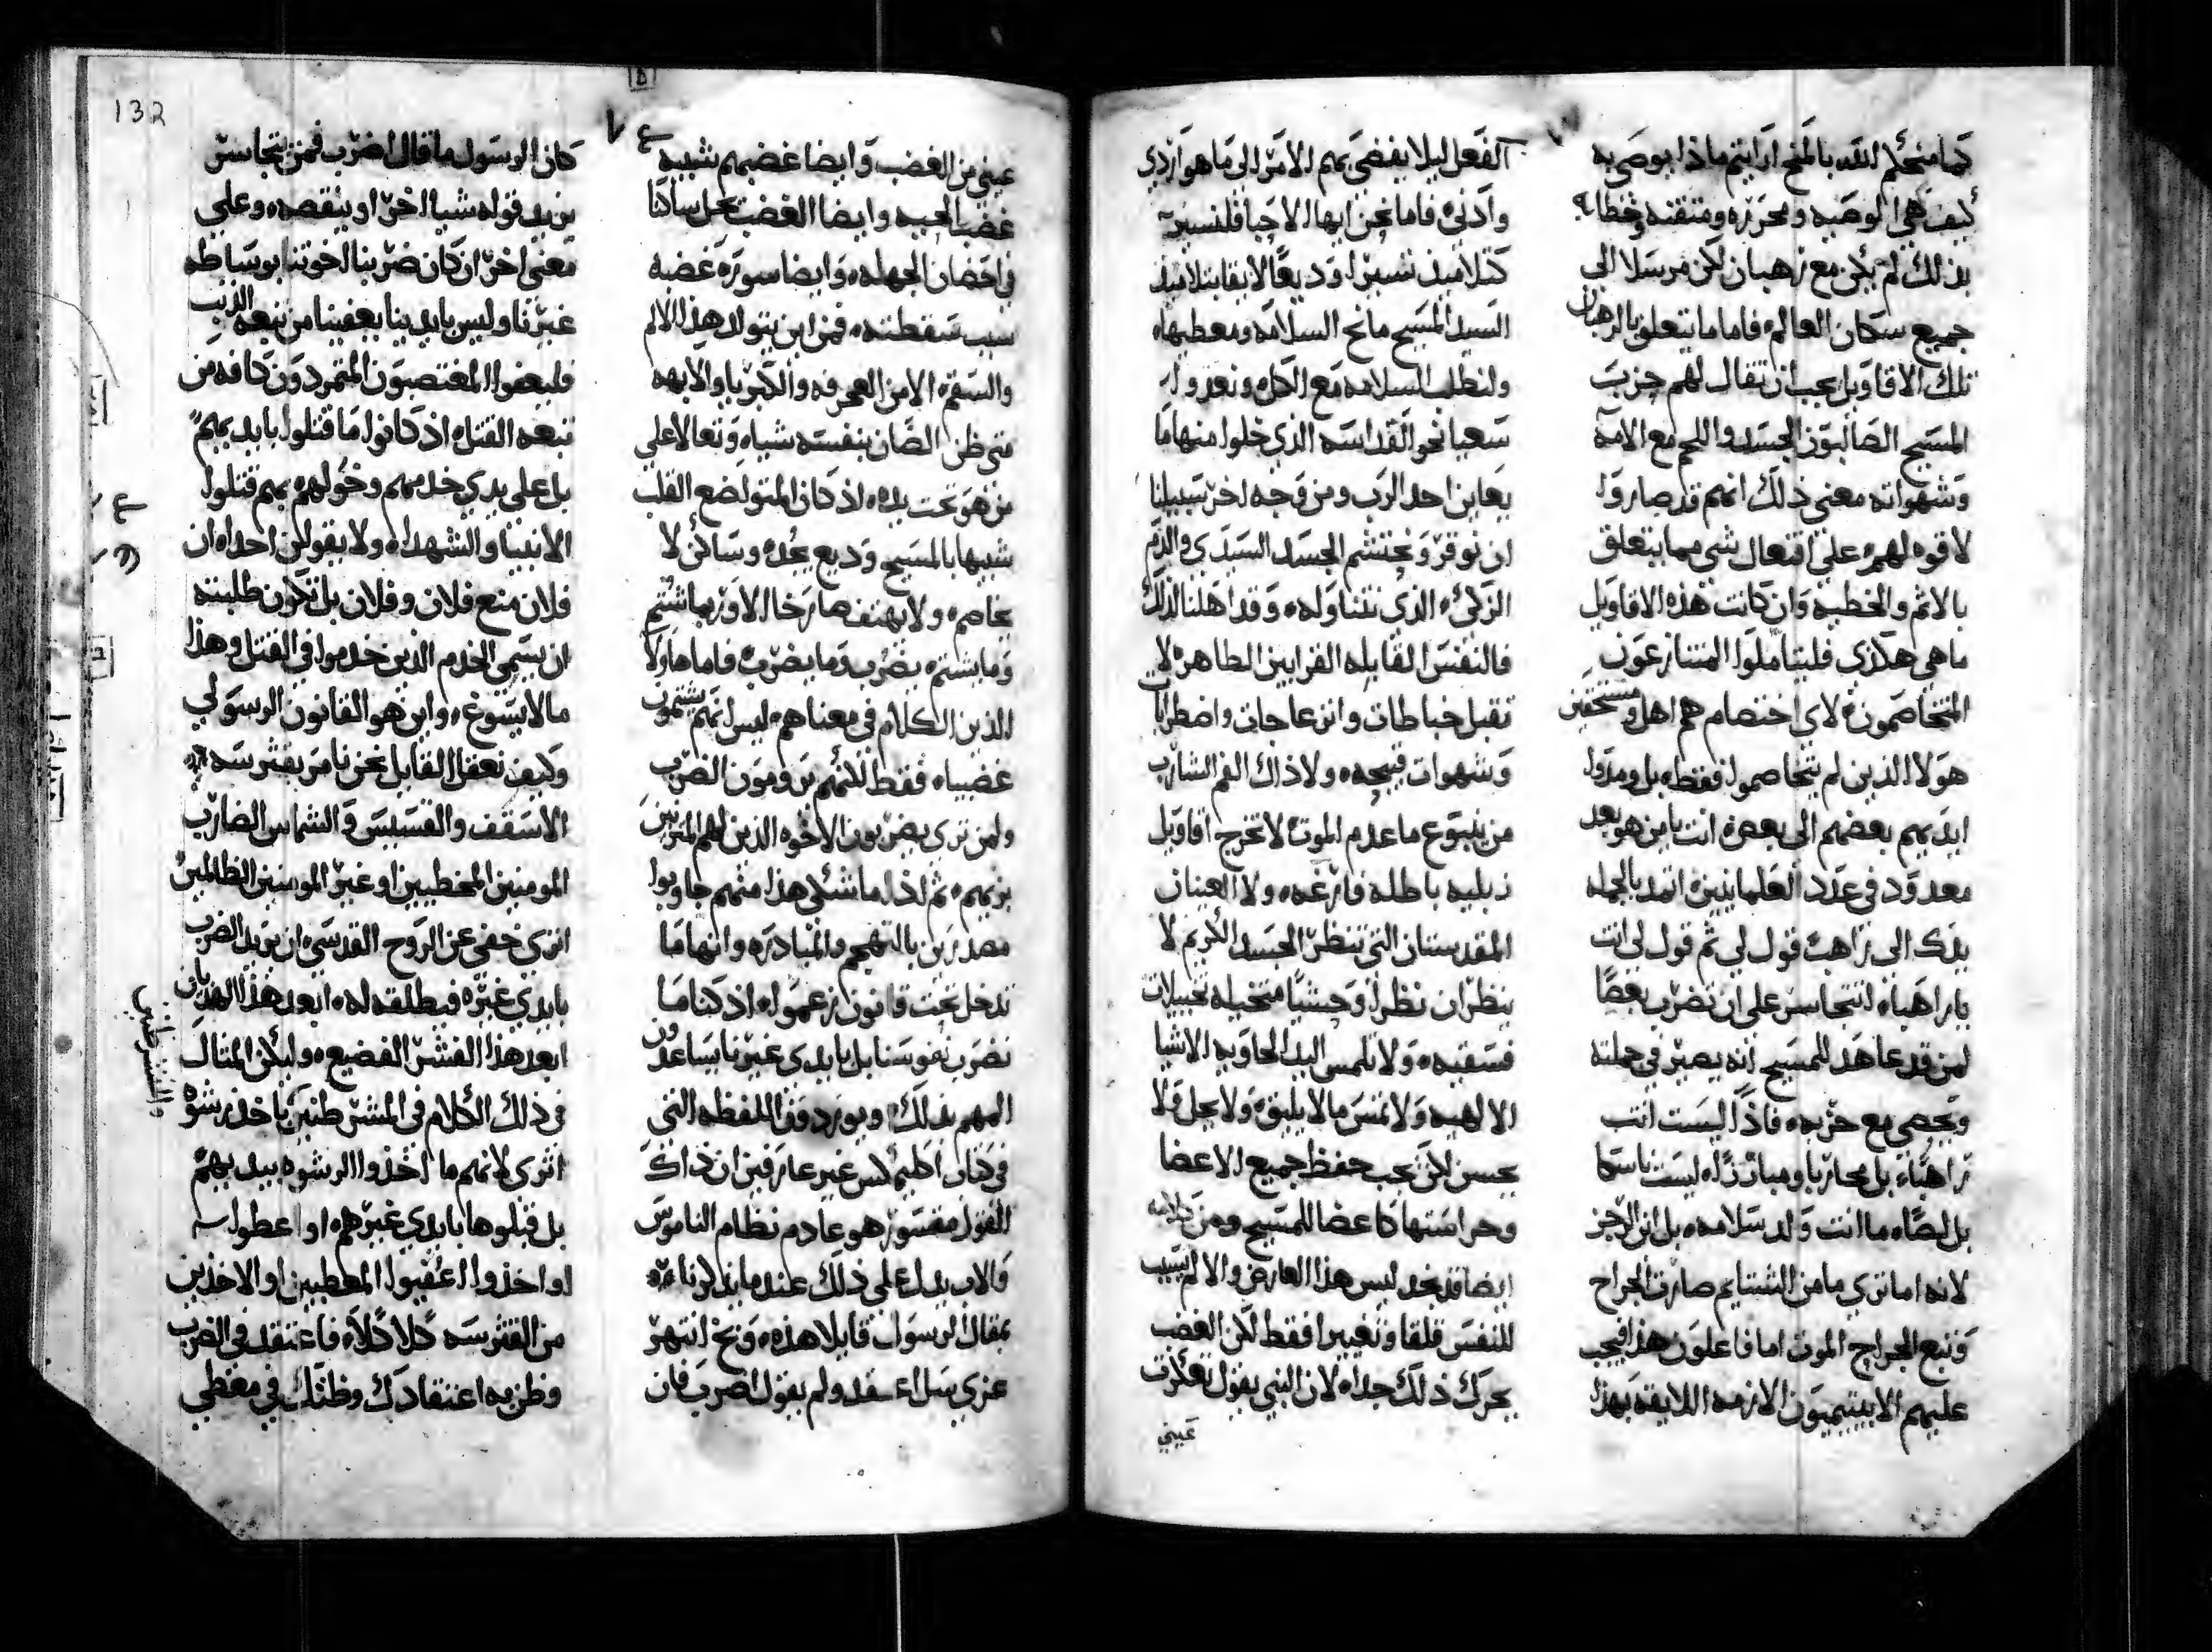 كما منحكم الله بالمنح ارايتم ماذا يوصي به
كيف هي الوصيه ومحرره ومتقنه وخطابه
بذلك لم يكن مع رهبان لكن مرسلا الي
جميع سكان العالم فاما ما يتعلق بالرهبان
تلك الاقاويل يجب ان تقال لهم حزب
المسيح الصالبون الجسد واللحم مع الامه
وشهواته معني ذلك انهم قد صاروا
لا قوه لهم علي افتعال شي مما يتعلق
بالاثم والخطيه وان كانت هذه الاقاويل
ما هي هكذي فليتاملوا المتنازعون
المتخاصمون لاي اختصام هم اهل ومستحقين
هولا الذين لم يتخاصموا فقط بل ومدوا
ايديهم بعضهم الي بعض انت يا من هو بعد
معدود في عدد العلمانيين اتمد بالجمله
يدك الي راهب قول لي ثم قول لي انت
يا راهبا اتتجاسر علي ان تضرب بعضا
لمن قد عاهد للمسيح انه يصير في جملته
ويحصي مع حزبه فاذا ليست انت
راهبا بل محاربا ومبارزا ليست ناسكا
بل لصا ما انت ولد سلامه بل ابن الرجز
لانه اما تري ما من الشتايم صارت الجراح
وتبع الجراح الموت اما فاعلون هذا فيجب
عليهم الابيتيميون الازمه اللايقه بهذا
الفعل ليلا يفضي بهم الامر الي ما هو اردي
وادني فاما نحن ايها الاحبا فلنسير
كتلاميذ تسيرا وديعا لايقا بتلاميذ
السيد المسيح مانح السلامه ومعطيها
ولنطلب السلامه مع الكل ونعدوا
سعيا نحو القداسه الذي خلوا منها ما
يعاين احد الرب ومن وجه اخر سبيلنا
ان نوقر ونحتشم الجسد السيدي والدم
الزكي الذي نتناوله وقد اهلنا لذلك
فالنفس القابله القرابين الطاهره لا
تقبل خباطات وانزعاجات واضطرابات
وشهوات قبيحه ولا ذاك الفم الشارب
من ينبوع ما عدم الموت لا تخرج اقاويل
ذبليه باطله فارغه ولا العينان
المقدستان التي تنظر الجسد الكريم لا
ينظران نظرا وحشيا متخيله تخييلات
فسقيه ولا تلمس اليد الحاويه الاشيا
الالهيه ولا تمس ما لا يليق ولا يحل ولا
يحسن لكن يجب حفظ جميع الاعضا
وحراستها كاعضا للمسيح ومن كلامه
ايضا قد نجد ليس هذا العارض والالم يسبب
للنفس قلقا وتغييرا فقط لكن الغضب
يحرك ذلك جدا لان النبي يقول تعكرت
عيني
عيني من الغضب وايضا غضبهم شبيه
غضب الحيه وايضا الغضب يحل ساكنا
في احضان الجهله وايضا سوره غضبه
سبب سقطته فمن اين يتولد هذا الالم
والسقم الا من العجرفه والكبريا والابهه
متي ظن الضان بنفسه شياه وتعالا علي
من هو تحت يده اذ كان المتواضع القلب
شبيها بالمسيح وديع يجده وساكن لا
يخاصم ولا يهتف صارخا الا وربما شتم
وما يشتم يضرب وما يضرب فاما هاولا
الذين الكلام في معناهم ليس انهم يشتمون
غضبياه فقط لكنهم يرومون الضرب
ولمن تري يضربون الاخوه الذين لهم المتزيين
بزيهم ثم اذا ما سئلي هذا منهم جاوبوا
مصدرين بالتهجم والمبادره وانها ما
تدخل تحت قانون زعموا اذ كنا ما
نضرب نفوسنا بل بايدي غيرنا يساعدون
المهم بذلك ويوردون اللفظه التي
في كتاب اكليمكس غير عارفين ان ذاك
القول مفسور هو عادم نظام الناموس
والاب يدل علي ذلك عندما يذكرنا مره
بمقال الرسول قايلا هذه وبخ انتهر
عزي سل اعتقد ولم يقول اضرب فان
132
كان الرسول ما قال اضرب فمن يتجاسر
يزيد قوله شيا اخر او ينقصه وعلي
معني اخر ان كان ضربنا اخوتنا بوساطه
غيرنا وليس بايدينا يعفينا من تبعه الذنب
فليعفوا المغتصبون المتمردون كافه من
تبعه القتل اذ كانوا ما قتلوا بايديهم
بل علي يدي خدمهم وخولهم بهم قتلوا
الانبيا والشهدا ولا يقولن احدا ان
فلان منع فلان وفلان بل تكون طلبته
ان يسمي الخدم الذين خدموا في القتل وهذا
ما لا يسوغ واين هو القانون الرسولي
وكيف نعقل القايل نحن نامر بقترسه
الاسقف والقسيس والشماس الضارب
المومنين المخطيين او غير المومنين الظالمين
اتري خفي عن الروح القدسي ان يزيد الضرب
بايدي غيره فيطلقه له ابعد هذا الهذيان
ابعد هذا الفشر الفضيع وليكن المثال
في ذلك الكلام في المشرطنين باخذ رشوه
والمتشرطنين
اتري لانهم ما اخذوا الرشوه بيديهم
بل قبلوها بايدي غيرهم او اعطوا
او اخذوا اعفيوا المعطيين او الاخذين
من القترسه كلا كلا فاعتقد في الضرب
وظن به اعتقادك وظنك في معطي